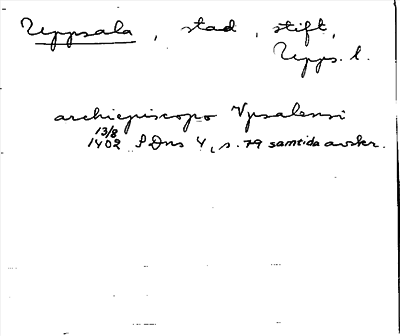 Uppsala, stad, stift,
Upps. l.
archiepiscopo Vpsalensi
13/8
1402 SDns 4, s. 79 samtida avskr.